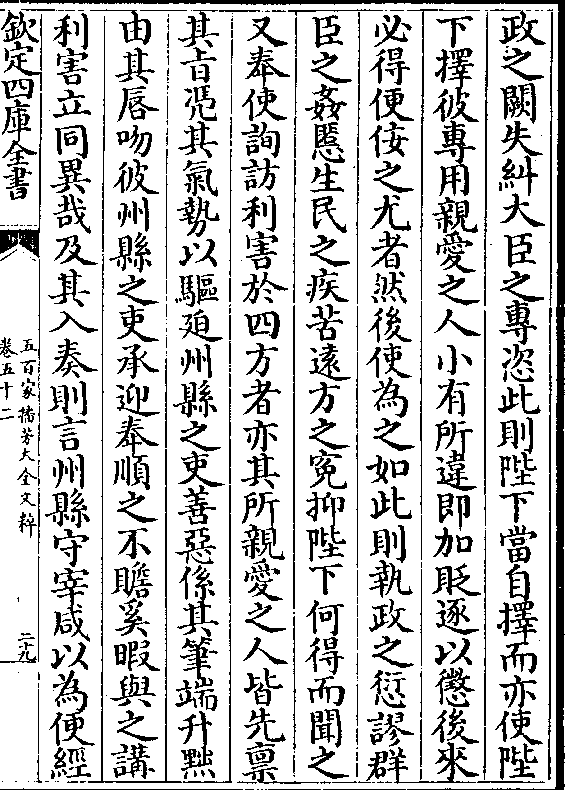 政之闕失糾大臣之專恣此則陛下當自擇而亦使陛
下擇彼專用親愛之人小有所違即加貶逐以懲後來
必得便佞之尤者然後使為之如此則執政之愆謬群
臣之姦慝生民之疾苦遠方之寃抑陛下何得而聞之
又奉使詢訪利害於四方者亦其所親愛之人皆先禀
其㫖凴其氣勢以驅廹州縣之吏善惡係其筆端升黜
由其唇吻彼州縣之吏承迎奉順之不贍奚暇與之講
利害立同異哉及其入奏則言州縣守宰咸以為便經
欽定四庫全書
五百家播芳大全文粹
卷五十二
二十九